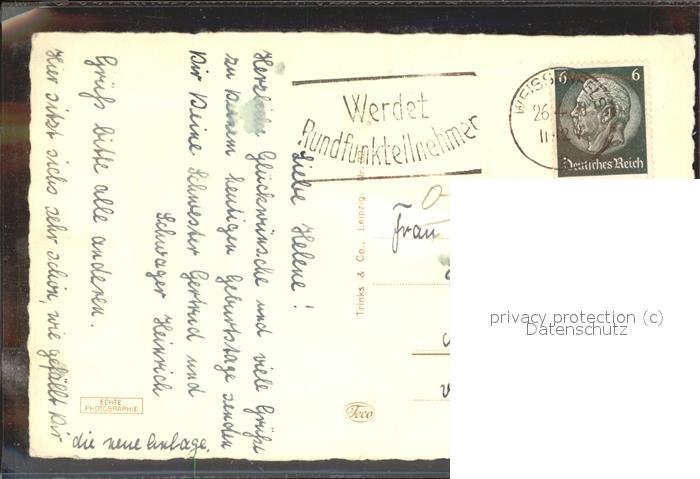 Liebe Helene!
Herzliche Glückwünsche und viele Grüße
zu Deinem heutigen Geburtstage senden
Dir Deine Schwester Gertrud und
Schwager Heinrich
Grüß bitte alle anderen.
Hier sitzt sichs sehr schön, wie gefällt Dir
die neue Anlage.
ECHTE
PHOTOGRAPHIE
Trinks & Co., Leipzig,
Teco
Werdet
Rundfunkteilnehmer
WEISSENFELS
26
6 6
Deutsches Reich
Frau
privacy protection (c)
Datenschutz